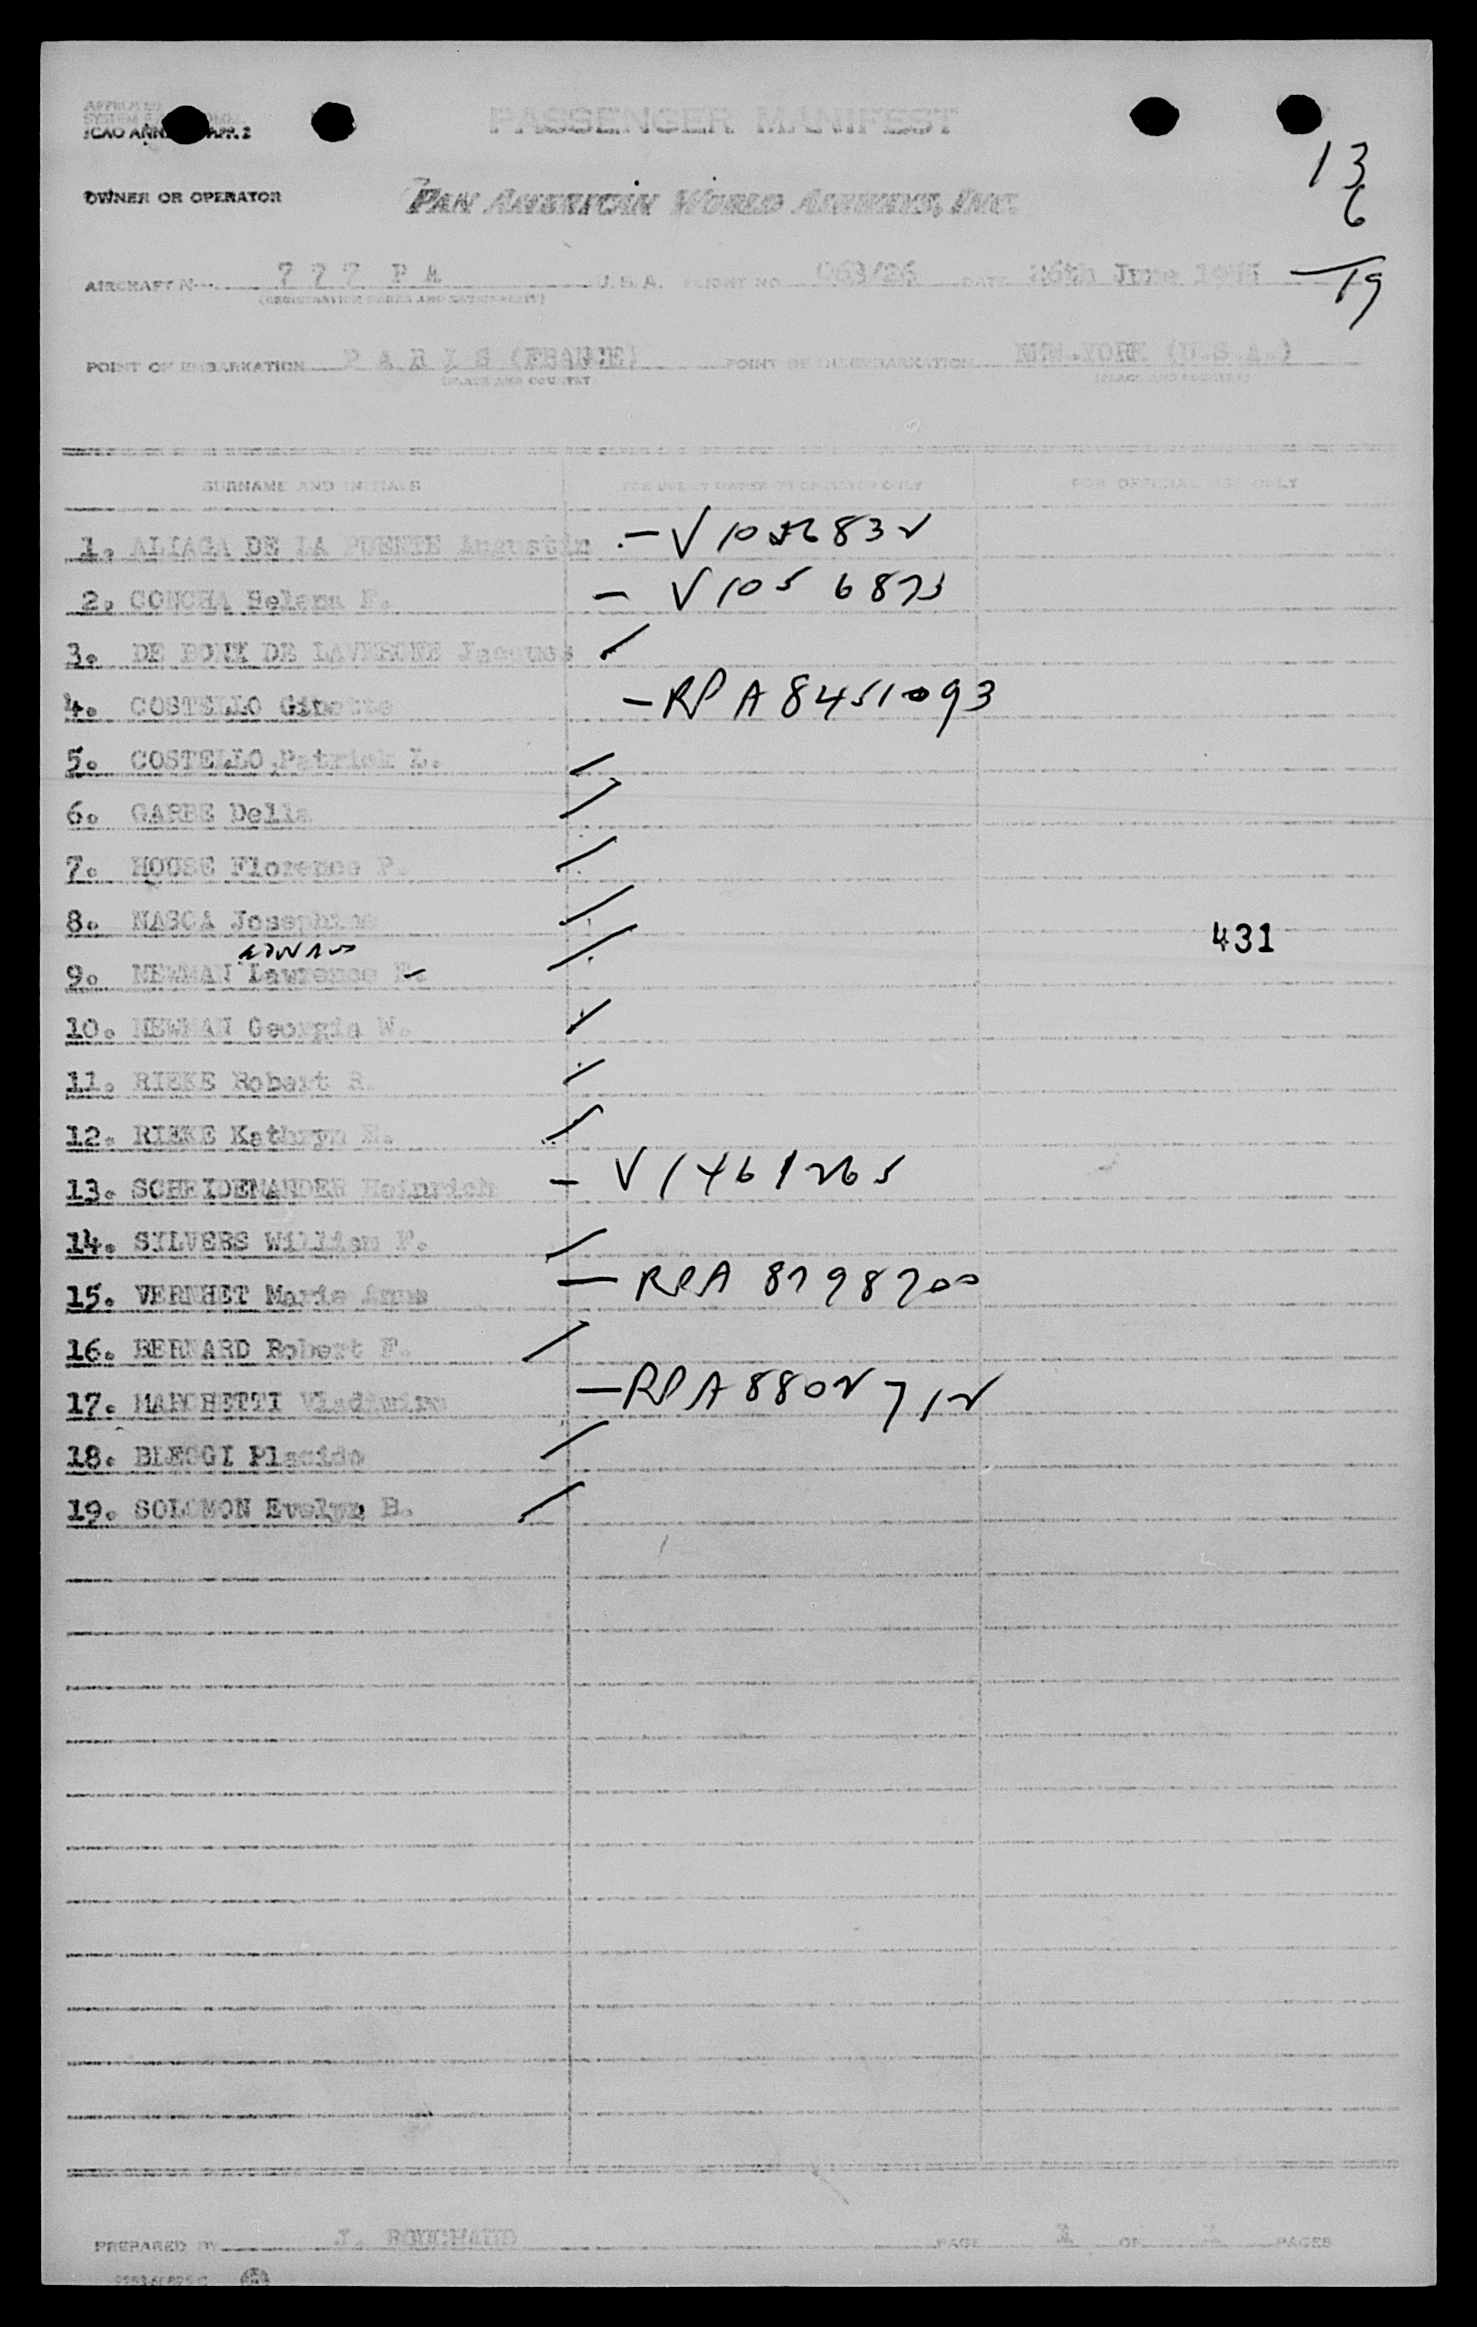 PASSENGER MANIFEST
ICAO APP. 2
13
OWNER OR OPERATOR PAN AMERICAN WORLD AIRWAYS, INC.
6
AIRCRAFT 777 PA U.S.A. FLIGHT NO. 063/26 DATE 26th June
19
(REGISTRATION MARKS AND NATIONALITY)
POINT OF EMBARKATION PARIS (FRANCE) POINT OF DISEMBARKATION NEW.YORK (U.S.A.)
(PLACE AND COUNTRY) (PLACE AND COUNTRY)
SURNAME AND INITIALS FOR USE BY OWNER OR OPERATOR ONLY FOR OFFICIAL USE ONLY
1. ALIAGA DE LA PUENTE Augustin - V
2. CONCHA - V105
3. DE LAVERGNE Jacques
4. COSTELLO - RP A8451093
5. COSTELLO Patrick L.
6. GARBE Della
7. HOUSE Florence P.
8. MASCA Josephine
431
9. NEWMAN Lawrence
10. NEWMAN Georgia W.
11. RIEKE Robert
12. RIEKE Kathryn
13. Heinrich - V1461265
14. SILVERS William F.
15. VERNHET Marie - RPA 8798700
16. BERNARD Robert F.
17. MARCHETTI - RPA 8802712
18. BLEGGI Placido
19. SOLOMON Evelyn B.
PREPARED BY J. ROUCHAUD PAGE OF PAGES